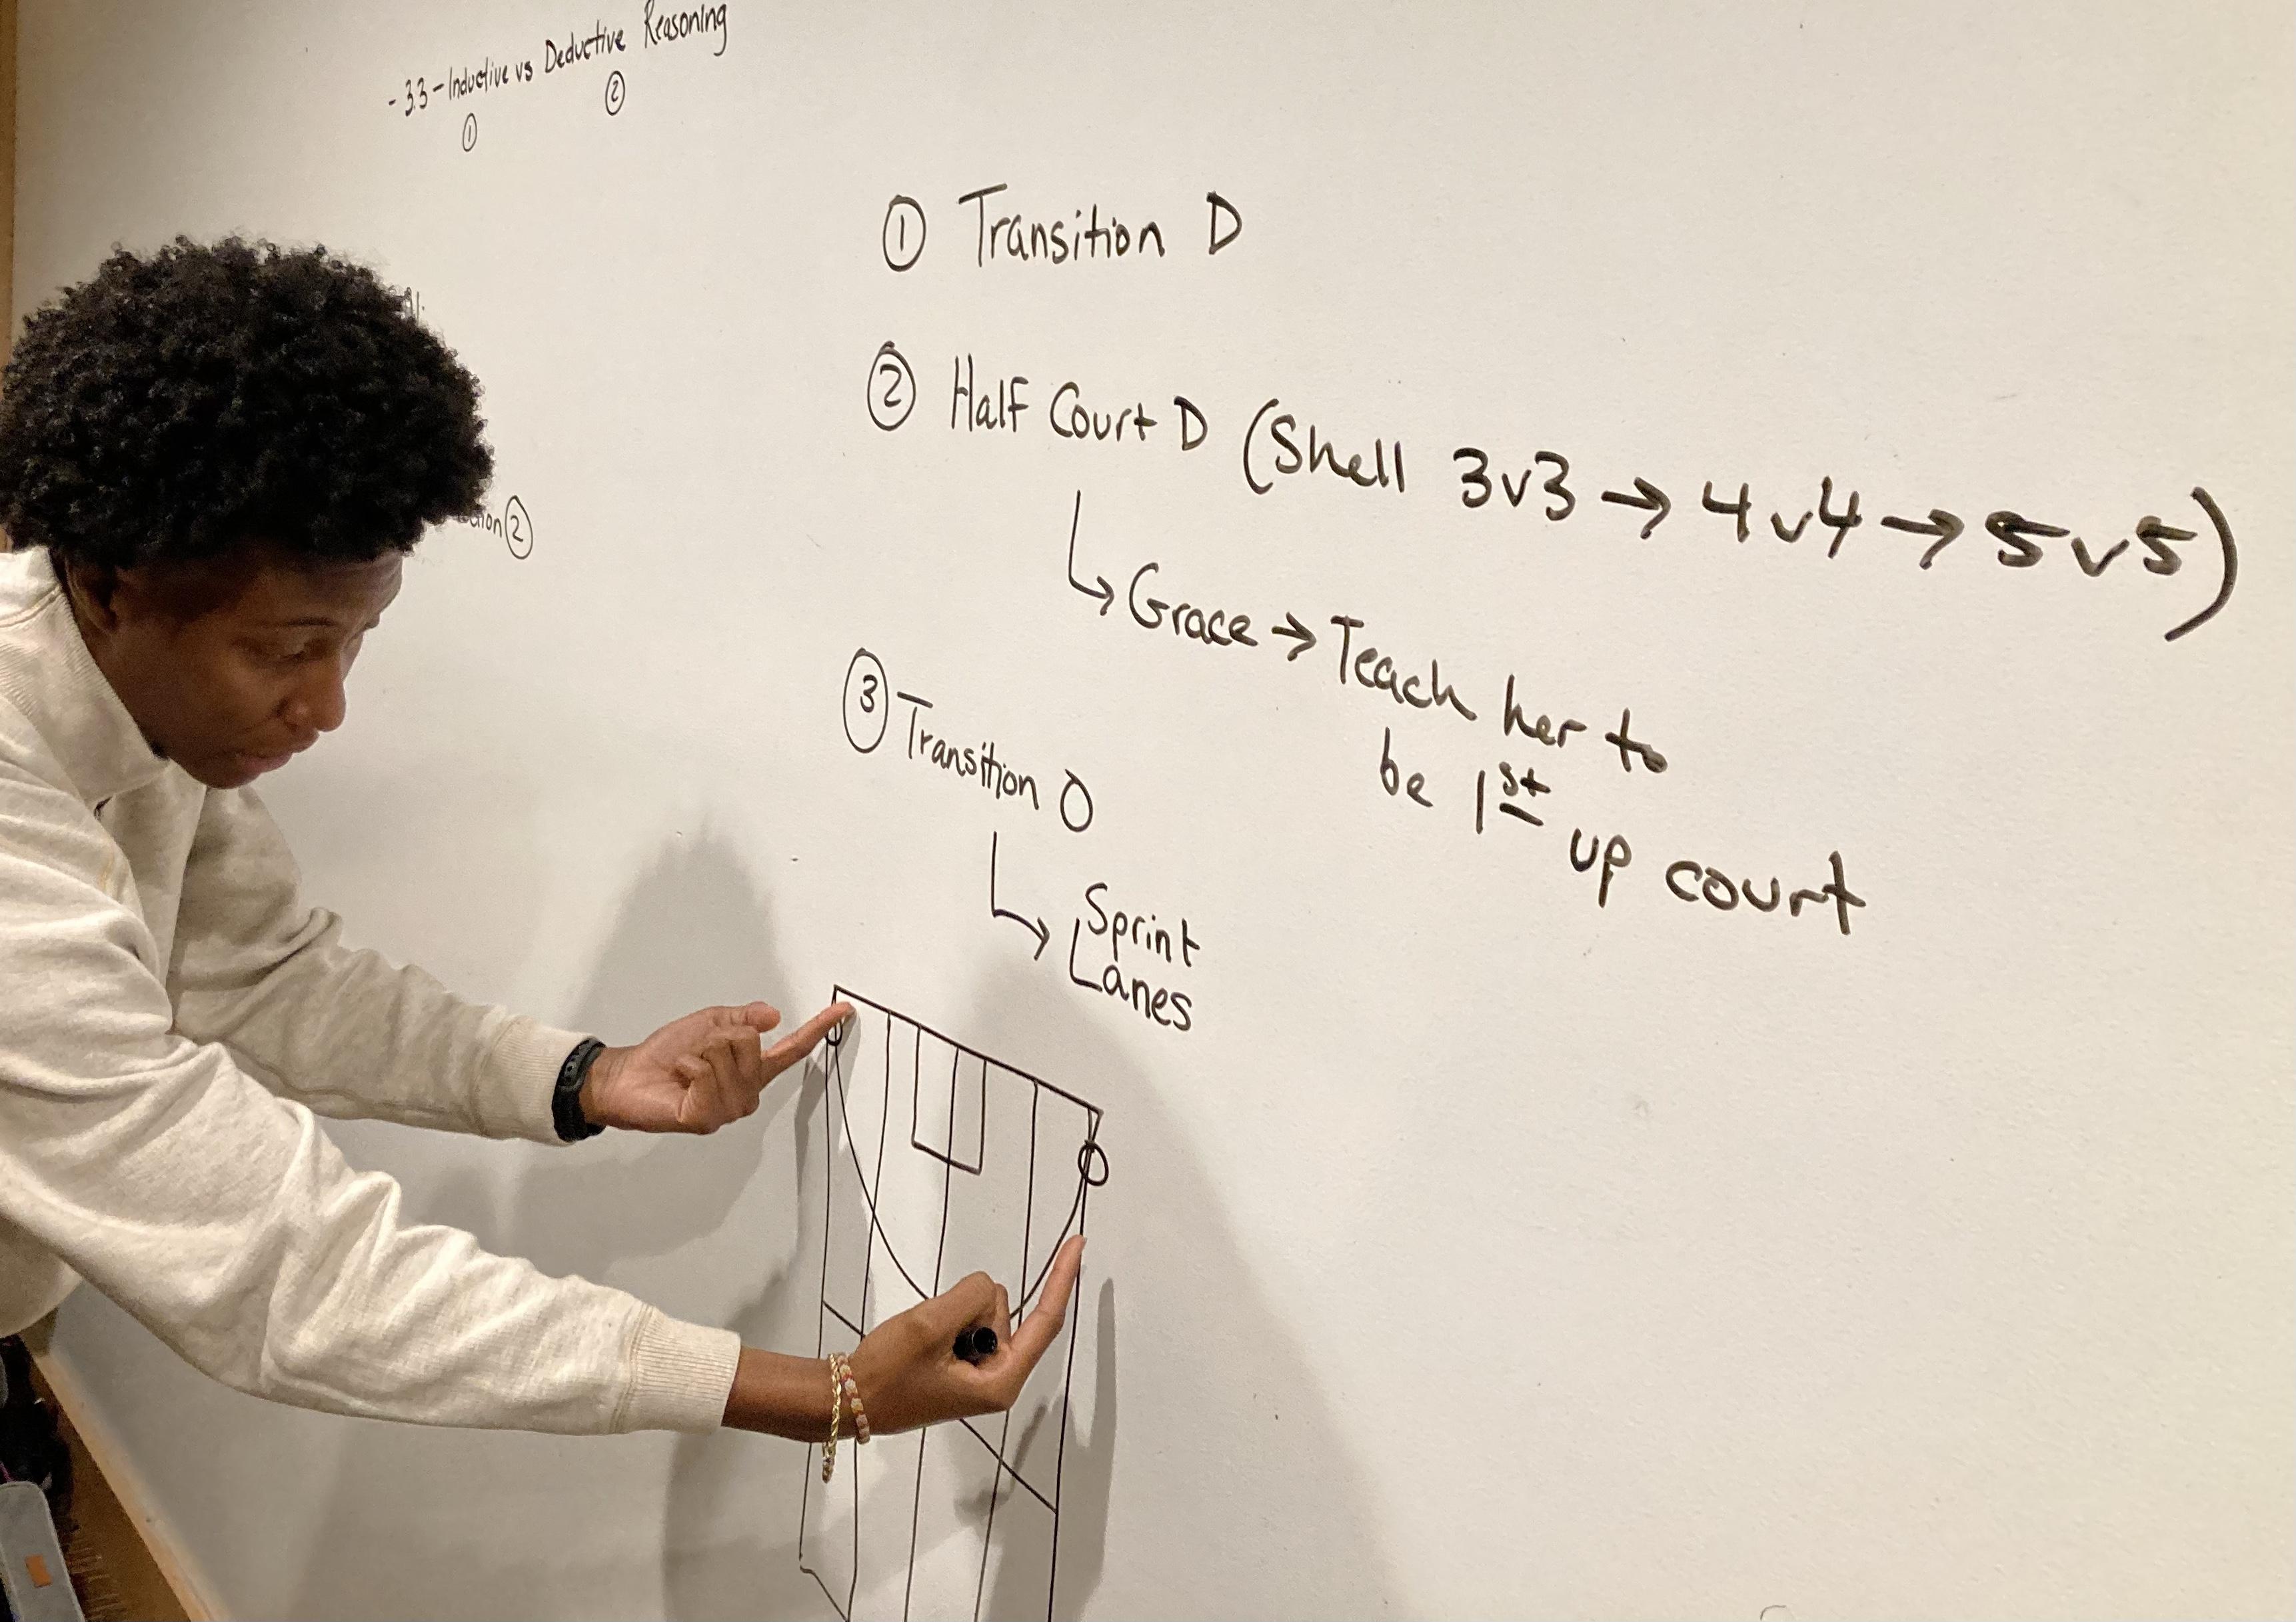 - 3.3 - Inductive vs Deductive Reasoning
① ②
① Transition D
② Half Court D (Shell 3v3 → 4v4 → 5v5)
↳ Grace → Teach her to
be 1st
up court
②
③ Transition O
↳ Sprint
Lanes